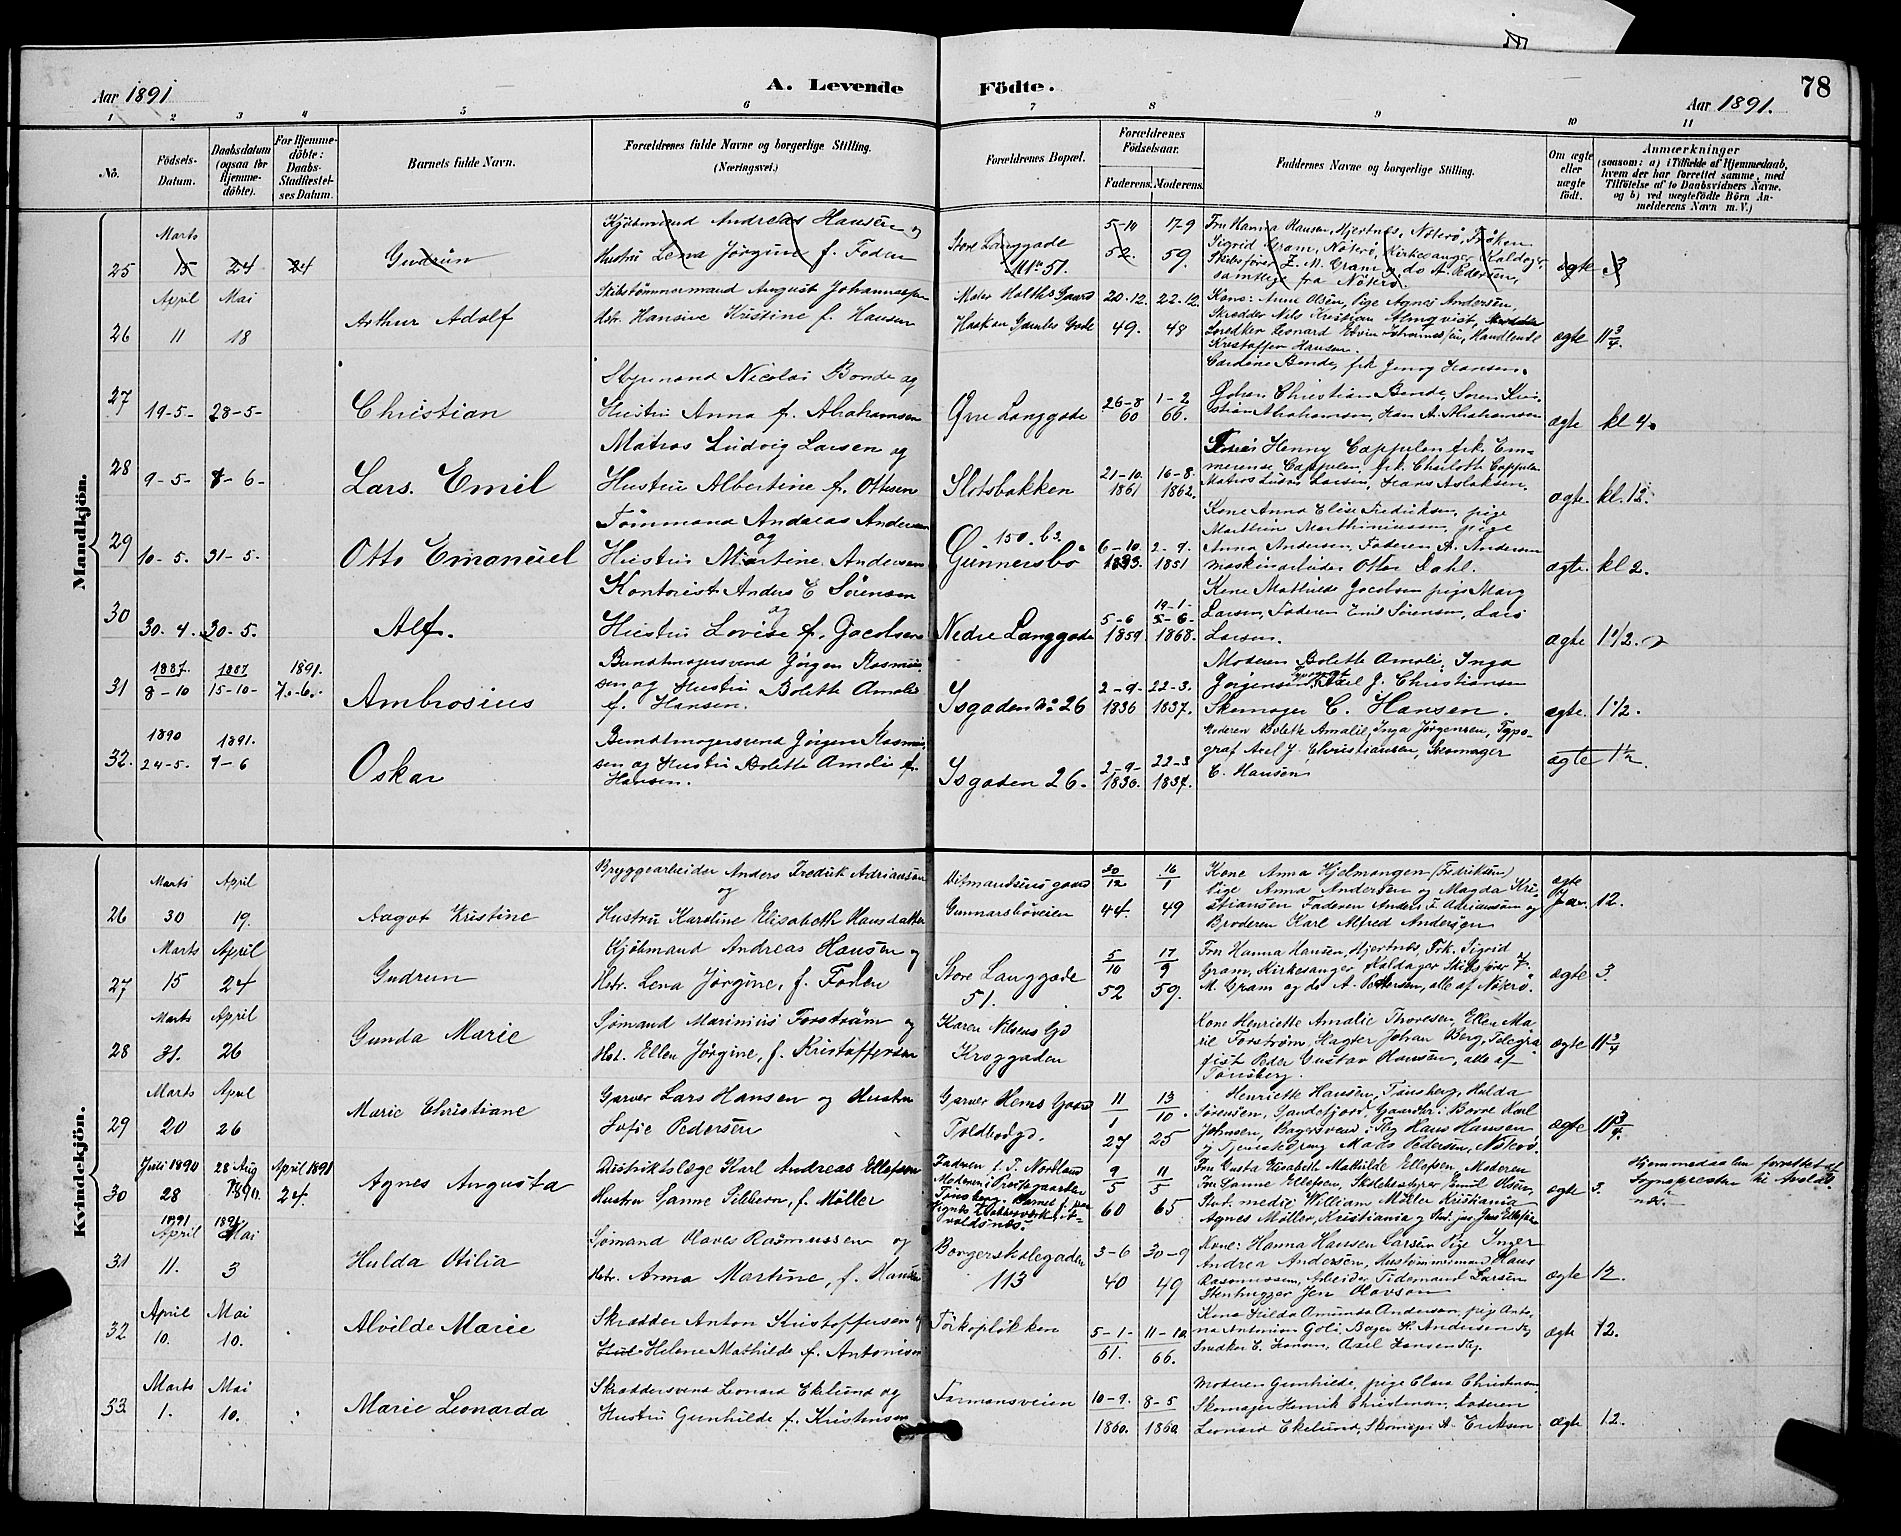 Aar 1891
A. Levende
Födte.
Aar 1891.
78
1 2 3 4 5 6 7 8 9 10 11
No.
Födsels-Datum.
Daabsdatum (ogsaa for Hjemme-döbte).
For Hjemme-döbte: Daabs-Stadfæstel-ses Datum.
Barnets fulde Navn.
Forældrenes fulde Navne og borgerlige Stilling. (Næringsvei.)
Forældrenes Bopæl.
Forældrenes Födselsaar.
Faderens. Moderens.
Faddernes Navne og borgerlige Stilling.
Om ægte eller uægte født.
Anmærkninger
(saasom: a) i Tilfælde af Hjemmedaab, hvem der har forrettet samme, med Tilföielse af to Daabsvidners Navne. og b) ved uægtefödte Börn Anmelderens Navn m. V.)
Mandkjön.
Marts
Kjöbmand Andreas Hansen og
5-10 17-9
Fru Hanna Hansen, Hjertnes, Nöterö, Fröken
25 15 24 24 Gudrun
Hustru Lena Jörgine f. Foden
Store Langgade No 51.
52. 59.
Sigrid Gram, Nöterö, Kirkesanger Kaldager,
Skibsförer Z. M. Gram og do A. Pedersen,
samtlige fra Nöterö.
ægte 3
April Mai
26 11 18
Arthur Adolf
Skibstömmermand August Johannessen
Hstr. Hansine Kristine f. Hansen
Maler Holths Gaard
Haakon Gamles Gade
20-12. 22-12.
49. 48
Kone: Anne Olsen, Pige Agnes Andersen,
Skrædder Nils Kristian Almqvist,
Snedker Leonard Edvin Johannessen, Handlende
Kristoffer Hansen.
ægte 11 3/4.
27 19-5- 28-5-
Christian
Styrmand Nicolai Bonde og
Hustru Anna f. Abrahamsen
Øvre Langgade
26-8 60 1-2 66.
Bonde, frk Jenny Hansen.
Johan Christian Bonde, Soren Kri-
stian Abrahamsen, Hans A. Abrahamsen
ægte kl 4.
28 9-5- 7-6-
Lars. Emil
Matros Ludvig Larsen og
Hustru Albertine f. Ottesen
Slotsbakken
21-10. 1861 16-8. 1862.
Henny Cappelen frk. Em-
merense Cappelen, frk. Charlotte Cappelen
Matros Ludv. Larsen, Hans Aslaksen.
ægte. kl. 12.
29 10-5. 31-5.
Otto Emanuel
Tömmand Andreas Andersen
og
Hustru Martine Andersen
150. b3.
Gunnersbö
6-10 1833. 2-7. 1851
Kone Anna Elise Fredriksen, pige
Marthine Marthiniussen, pige
Anna Andersen, Faderen A. Andersen
maskinarbeider Otto Dahl.
ægte. kl 2.
30 30-4. 30-5.
Alf.
Kontorist Anders E Sörensen
og
Hustru Lovise f. Jacobsen
Nedre Langgade
5-6 1859 19-1- 5-6- 1868.
Kone Mathilde Jacobsen pige Marg
Larsen, Faderen Emil Sörensen, Lars
Larsen.
ægte 1 1/2.
31 1887. 8-10 1887 15-10- 1891. 7.-6.
Ambrosius
Bundtmagersvend Jörgen Rasmus-
sen og Hustru Bolette Amalie
f. Hansen.
Isgaden No 26
2-9- 1836 22-3. 1837.
Moderen Bolette Amalie, Inga
Jörgensen, Axel J. Christiansen
Skomager C. Hansen.
ægte. 1 1/2.
32. 1890 24-5. 1891. 7-6
Oskar
Bundtmagersvend Jörgen Rasmus-
sen og Hustru Bolette Amalie f.
Hansen.
Isgaden 26.
2-9- 1836. 22-3 1837.
Moderen Bolette Amalie, Inga Jörgensen, Typo-
graf Axel J. Christiansen, Skomager
C. Hansen
ægte 1 1/2.
Kvindekjön.
Marts April
26 30 19.
Aagot Kristine
Bryggearbeider Anders Fredrik Adriansen
og
Hustru Karoline Elisabeth Hansdatter
Gunnarsböveien
30/12 44. 16/1 49
Kone Anna Hjelmangen (Fredriksen)
Pige Anna Andersen og Magda Kri-
stiansen Faderen Anders F. Adriansen og
Broderen Karl Alfred Andersen
ægte
12.
Marts April
27 15 24
Gudrun
Kjöbmand Andreas Hansen og
Hstr. Lena Jörgine, f. Foden
Store Langgade
51.
5/10 52 17/9 59.
Fru Hanna Hansen, Hjertnes, Frk. Sigrid
Gram, Kirkesanger Kaldager Skibsförer Z.
M. Gram og do A. Pedersen, alle af Nöterö.
ægte 3.
Marts April
28 31. 26
Gunda Marie
Sjömand Marinius Forström og
Hst. Ellen Jörgine, f. Kristoffersen
Karen Nilsens Gd
Kroggaden
Kone Henriette Amalie Thoresen, Ellen Ma-
rie Forström, Johan Berg, Telegra-
fist Peder Gustav Hansen, alle af
Tönsberg.
ægte 11 3/4
Marts April
29 20 26
Marie Christiane
Garver Lars Hansen og Hustru
Sofie Pedersen
Garver Hems Gaard
Toldbodgd.
11/1 27 13/10. 25
Henriette Hansen, Tönsberg, Hulda
Sörensen, Sandefjord, Gaardbr. i Borre Karl
Johnsen, Bagersvend i Tbg Hans Hansen
og Tjenestedreng Mads Pedersen, Nöterö.
ægte 11 3/4.
Juli 1890 28 Aug April 1891
30 28 1890. 24.
Agnes Augusta
Distriktslæge Karl Andreas Ellefsen
Hustru Sanne Sibbern, f. Möller
Faderen f. T. Nordland
Moderen i Provstegaarden
Tönsberg.
9/5 60 11/5 65
Fru Gusta Elisabeth Mathilde Ellefsen, Moderen
Fru Sanne Ellefsen, Skolebestyrer Emil Olsen,
Stud. medic William Möller Kristiania
Agnes Möller, Kristiania og Stud. jur. Jens Ellefsen
ægte 3.
Hjemmedaaben forrettet af
Sognepresten til Avalds-
nes.
1891 1891
April Mai
31 11. 3
Hulda Otilia
Sjömand Olaves Rasmussen og
Hstr. Anna Martine, f. Hansen
Borgerskolegaden
113
3-6 40 30-9 49
Kone: Hanna Hansen Larsen Pige Inger
Andrea Andersen, Hustömmermand Hans
Rasmussen, Arbeider Tidemand Larsen
Stenhugger Jens Olavsen
ægte 12.
April Mai
32 10. 10.
Alvilde Marie
Skrædder Anton Kristoffersen og
Hust Helene Mathilde f. Antonisen
Torkoplökken
5-1- 61. 11-10 66.
Kone Hilda Amunda Andersen, pige Anto-
na Antonsen Goli, Bager H. Andersen Tbg
Snedker E. Hansen, Axel Hansen Tbg.
ægte 12.
Marts Mai
33. 1. 10.
Marie Leonarda
Skræddersvend Leonard Ekelund og
Hustru Gunhilde f. Kristensen
Farmansveien
10-9. 1860. 8-5 1860
Moderen Gunhilde, pige Clara Christensen
Skomager Henrik Christensen, Faderen
Leonard Ekelund, Skomager A. Eriksen
ægte 12.